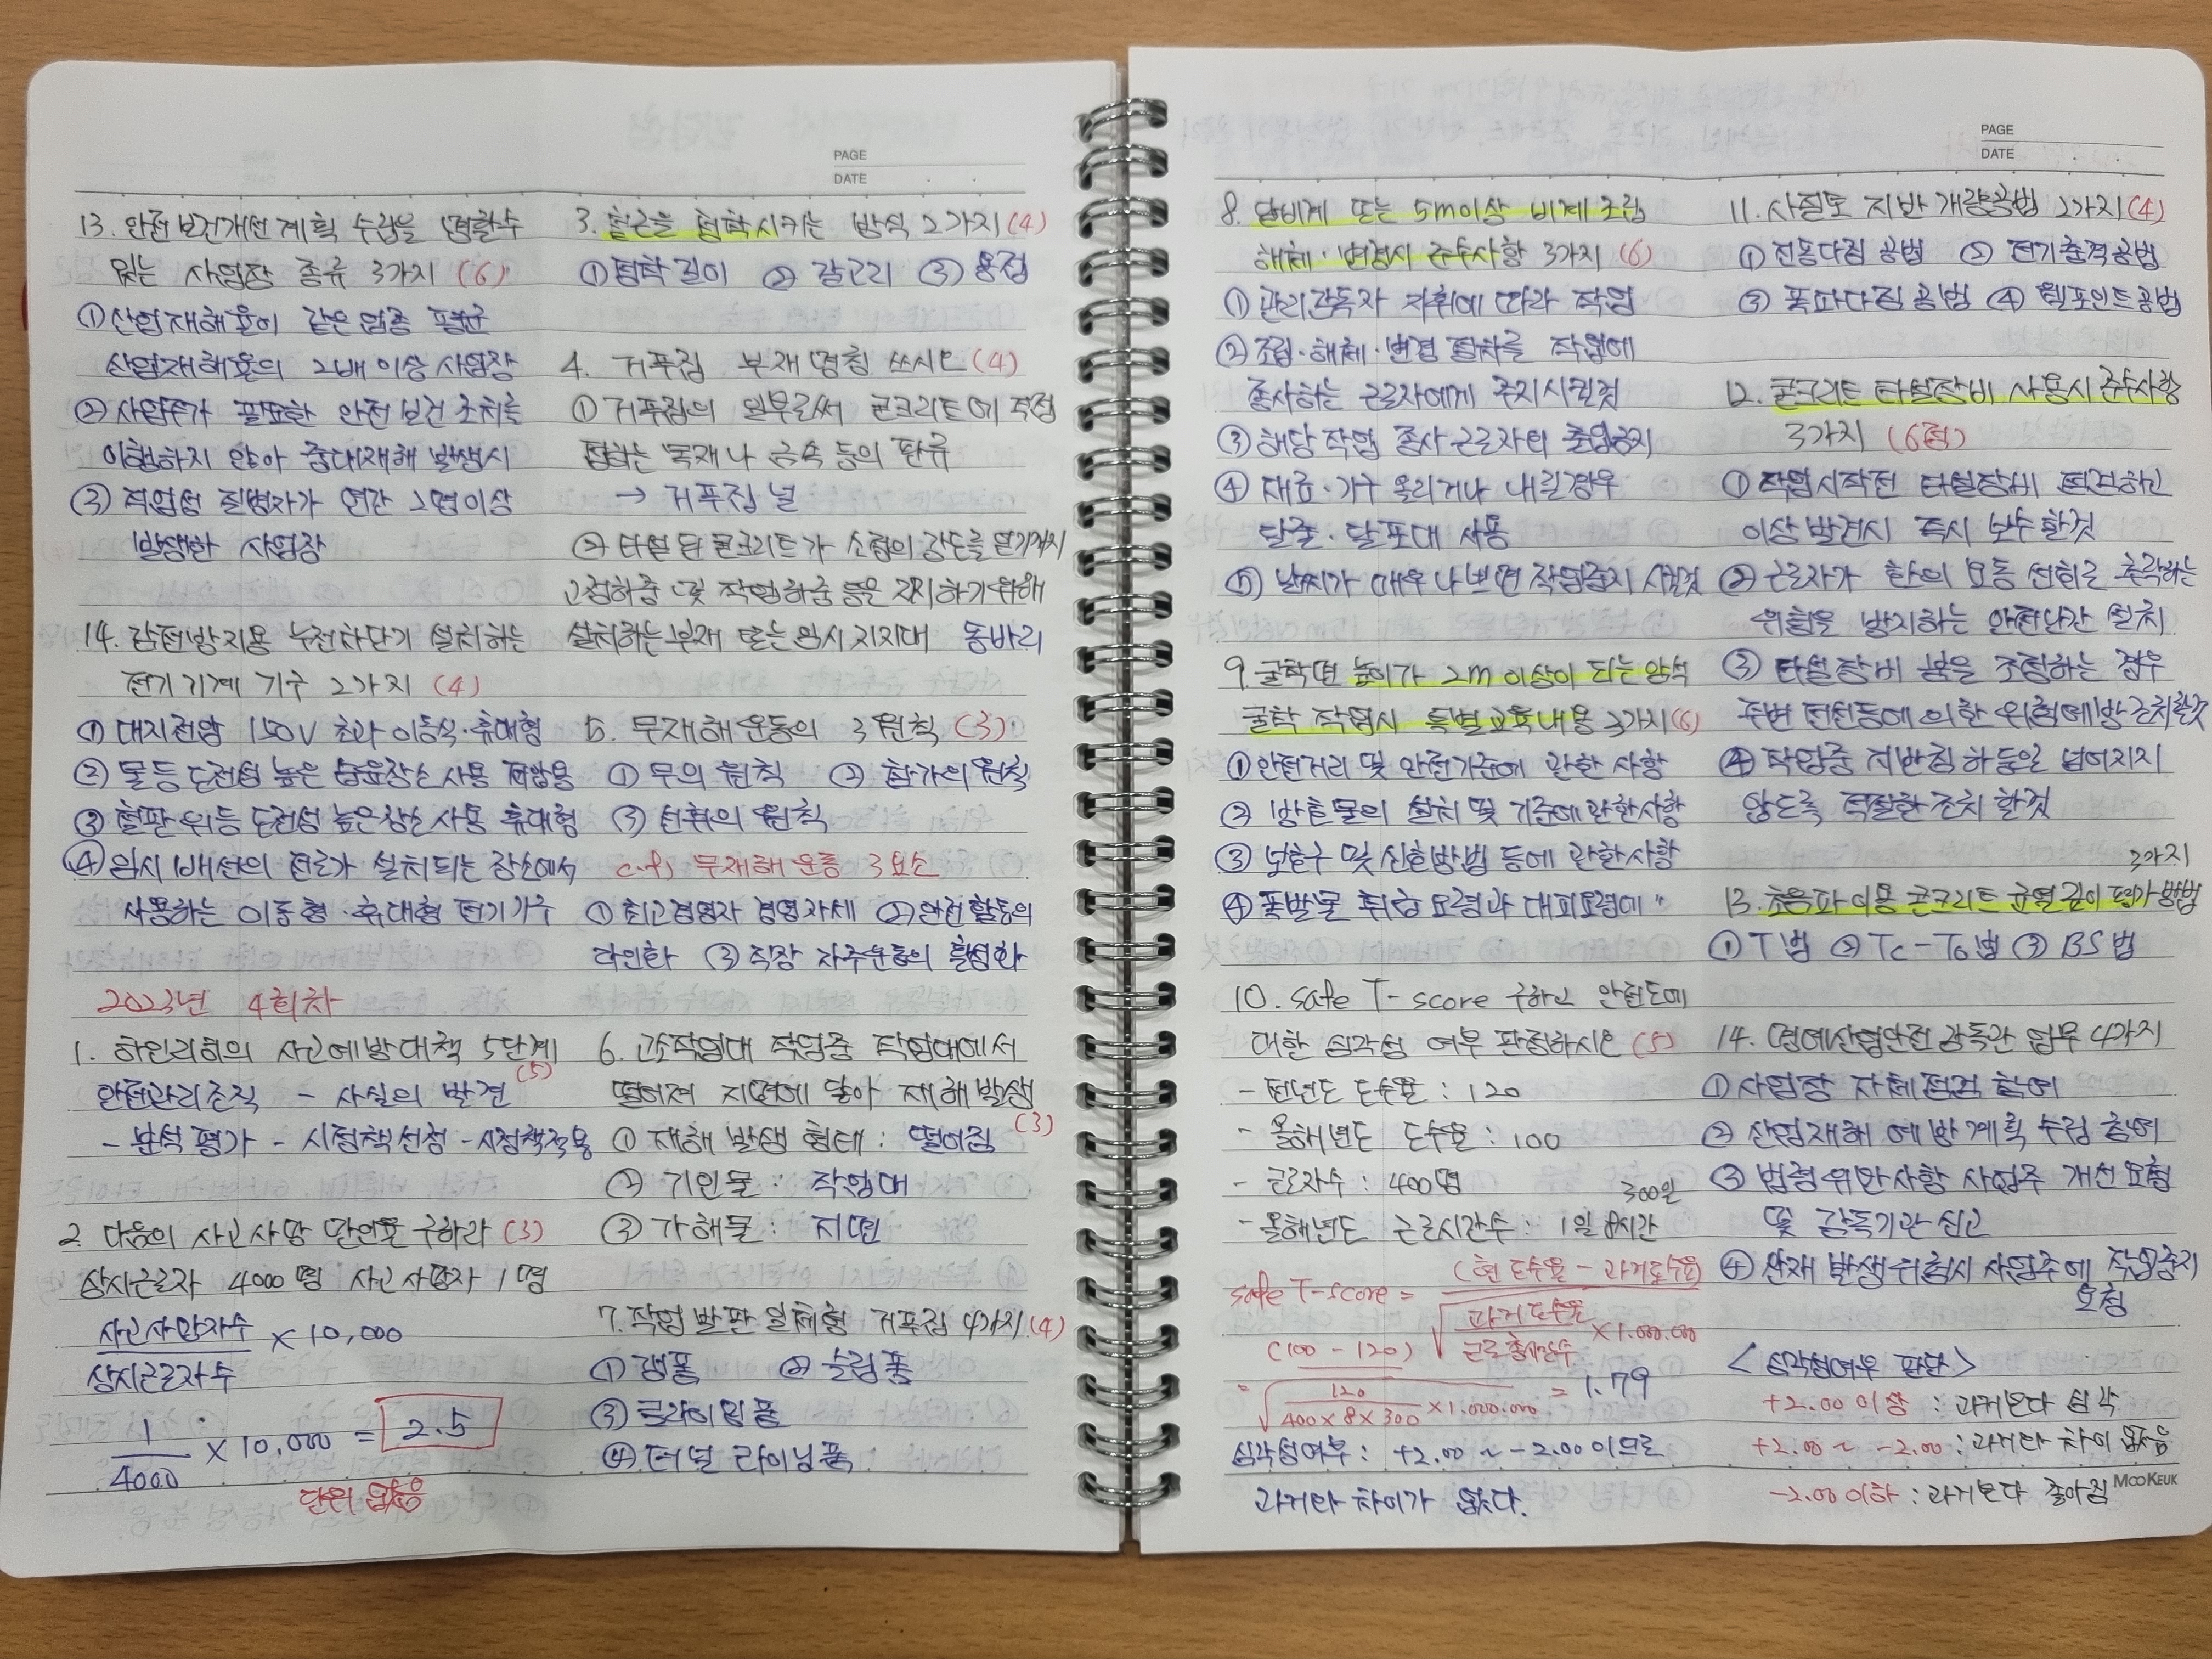 PAGE
DATE
13. 안전보건개선계획 수립을 명할수
있는 사업장 종류 3가지 (6)
① 산업재해율이 같은 업종 평균
산업재해율의 2배 이상 사업장
② 사업주가 필요한 안전보건 조치를
이행하지 않아 중대재해 발생시
③ 직업성 질병자가 연간 2명이상
발생한 사업장
14. 감전방지용 누전차단기 설치하는
전기기계 기구 2가지 (4)
① 대지전압 150V 초과 이동식·휴대형
② 물등 도전성 높은 습윤장소 사용 저압용
③ 철판 위등 도전성 높은장소 사용 휴대형
④ 임시배선의 전로가 설치되는 장소에서
사용하는 이동형·휴대형 전기기구
2023년 4회차
1. 하인리히의 사고예방대책 5단계 (5)
안전관리조직 - 사실의 발견
- 분석평가 - 시정책선정 - 시정책적용
2. 다음의 사고사망 만인율 구하라 (3)
상시근로자 4000명 사고사망자 1명
사고사망자수
상시근로자수
× 10,000
1
4000
× 10,000 = 2.5
단위 없음
3. 철근을 정착시키는 방식 2가지 (4)
① 정착길이 ② 갈고리 ③ 용접
4. 거푸집 부재명칭 쓰시오 (4)
① 거푸집의 일부로써 콘크리트에 직접
접하는 목재나 금속 등의 판류
→ 거푸집 널
② 타설된 콘크리트가 소정의 강도를 얻기까지
고정하중 및 작업하중 등을 지지하기위해
설치하는 부재 또는 임시 지지대 동바리
5. 무재해운동의 3원칙 (3)
① 무의 원칙 ② 참가의 원칙
③ 선취의 원칙
c.f) 무재해 운동 3요소
① 최고경영자 경영자세 ② 안전활동의
라인화 ③ 직장 자주운동의 활성화
6. 고소작업대 작업중 작업대에서
떨어져 지면에 닿아 재해발생 (3)
① 재해 발생 형태 : 떨어짐
② 기인물 : 작업대
③ 가해물 : 지면
7. 작업발판 일체형 거푸집 4가지 (4)
① 갱폼 ② 슬립폼
③ 클라이밍폼
④ 터널 라이닝폼
PAGE
DATE
8. 달비계 또는 5m이상 비계 조립
해체·변경시 준수사항 3가지 (6)
① 관리감독자 지휘에 따라 작업
② 조립·해체·변경 절차를 작업에
종사하는 근로자에게 주지시킬것
③ 해당작업 종사 근로자외 출입금지
④ 재료·기구 올리거나 내릴경우
달줄·달포대 사용
⑤ 날씨가 매우 나쁘면 작업중지 시킬것
9. 굴착면 높이가 2m 이상이 되는 암석
굴착 작업시 특별교육내용 3가지 (6)
① 안전거리 및 안전기준에 관한 사항
② 방호물의 설치 및 기준에 관한사항
③ 보호구 및 신호방법 등에 관한사항
④ 폭발물 취급 요령과 대피요령에 〃
10. Safe T-score 구하고 안전도에
대한 심각성 여부 판정하시오 (5)
- 전년도 도수율 : 120
- 올해년도 도수율 : 100
- 근로자수 : 400명
- 올해년도 근로시간수 : 1일 8시간 300일
safe T-score = (현 도수율 - 과거도수율)
√ 과거도수율
근로총시간수
× 1.000.000
= (100 - 120)
√ 120
400×8×300
× 1.000.000 = 1.79
심각성여부 : +2.00 ~ -2.00 이므로
과거와 차이가 없다.
11. 사질토 지반 개량공법 2가지 (4)
① 진동다짐 공법 ② 전기충격공법
③ 폭파다짐 공법 ④ 웰포인트공법
12. 콘크리트 타설장비 사용시 준수사항
3가지 (6점)
① 작업시작전 타설장비 점검하고
이상발견시 즉시 보수할것
② 근로자가 난간의 요동 선회로 추락하는
위험을 방지하는 안전난간 설치
③ 타설장비 붐을 조정하는 경우
주변 전선등에 의한 위험예방 조치할것
④ 작업중 지반침하 등으로 넘어지지
않도록 적절한 조치 할것
13. 초음파 이용 콘크리트 균열 깊이 평가 방법 3가지
① T법 ② Tc-To법 ③ BS법
14. 명예산업안전 감독관 업무 4가지
① 사업장 자체점검 참여
② 산업재해 예방계획 수립 참여
③ 법령위반사항 사업주 개선요청
및 감독기관 신고
④ 산재 발생위험시 사업주에 작업중지
요청
<심각성여부 판단>
+2.00 이상 : 과거보다 심각
+2.00 ~ -2.00 : 과거와 차이 없음
-2.00 이하 : 과거보다 좋아짐
MOOKEUK